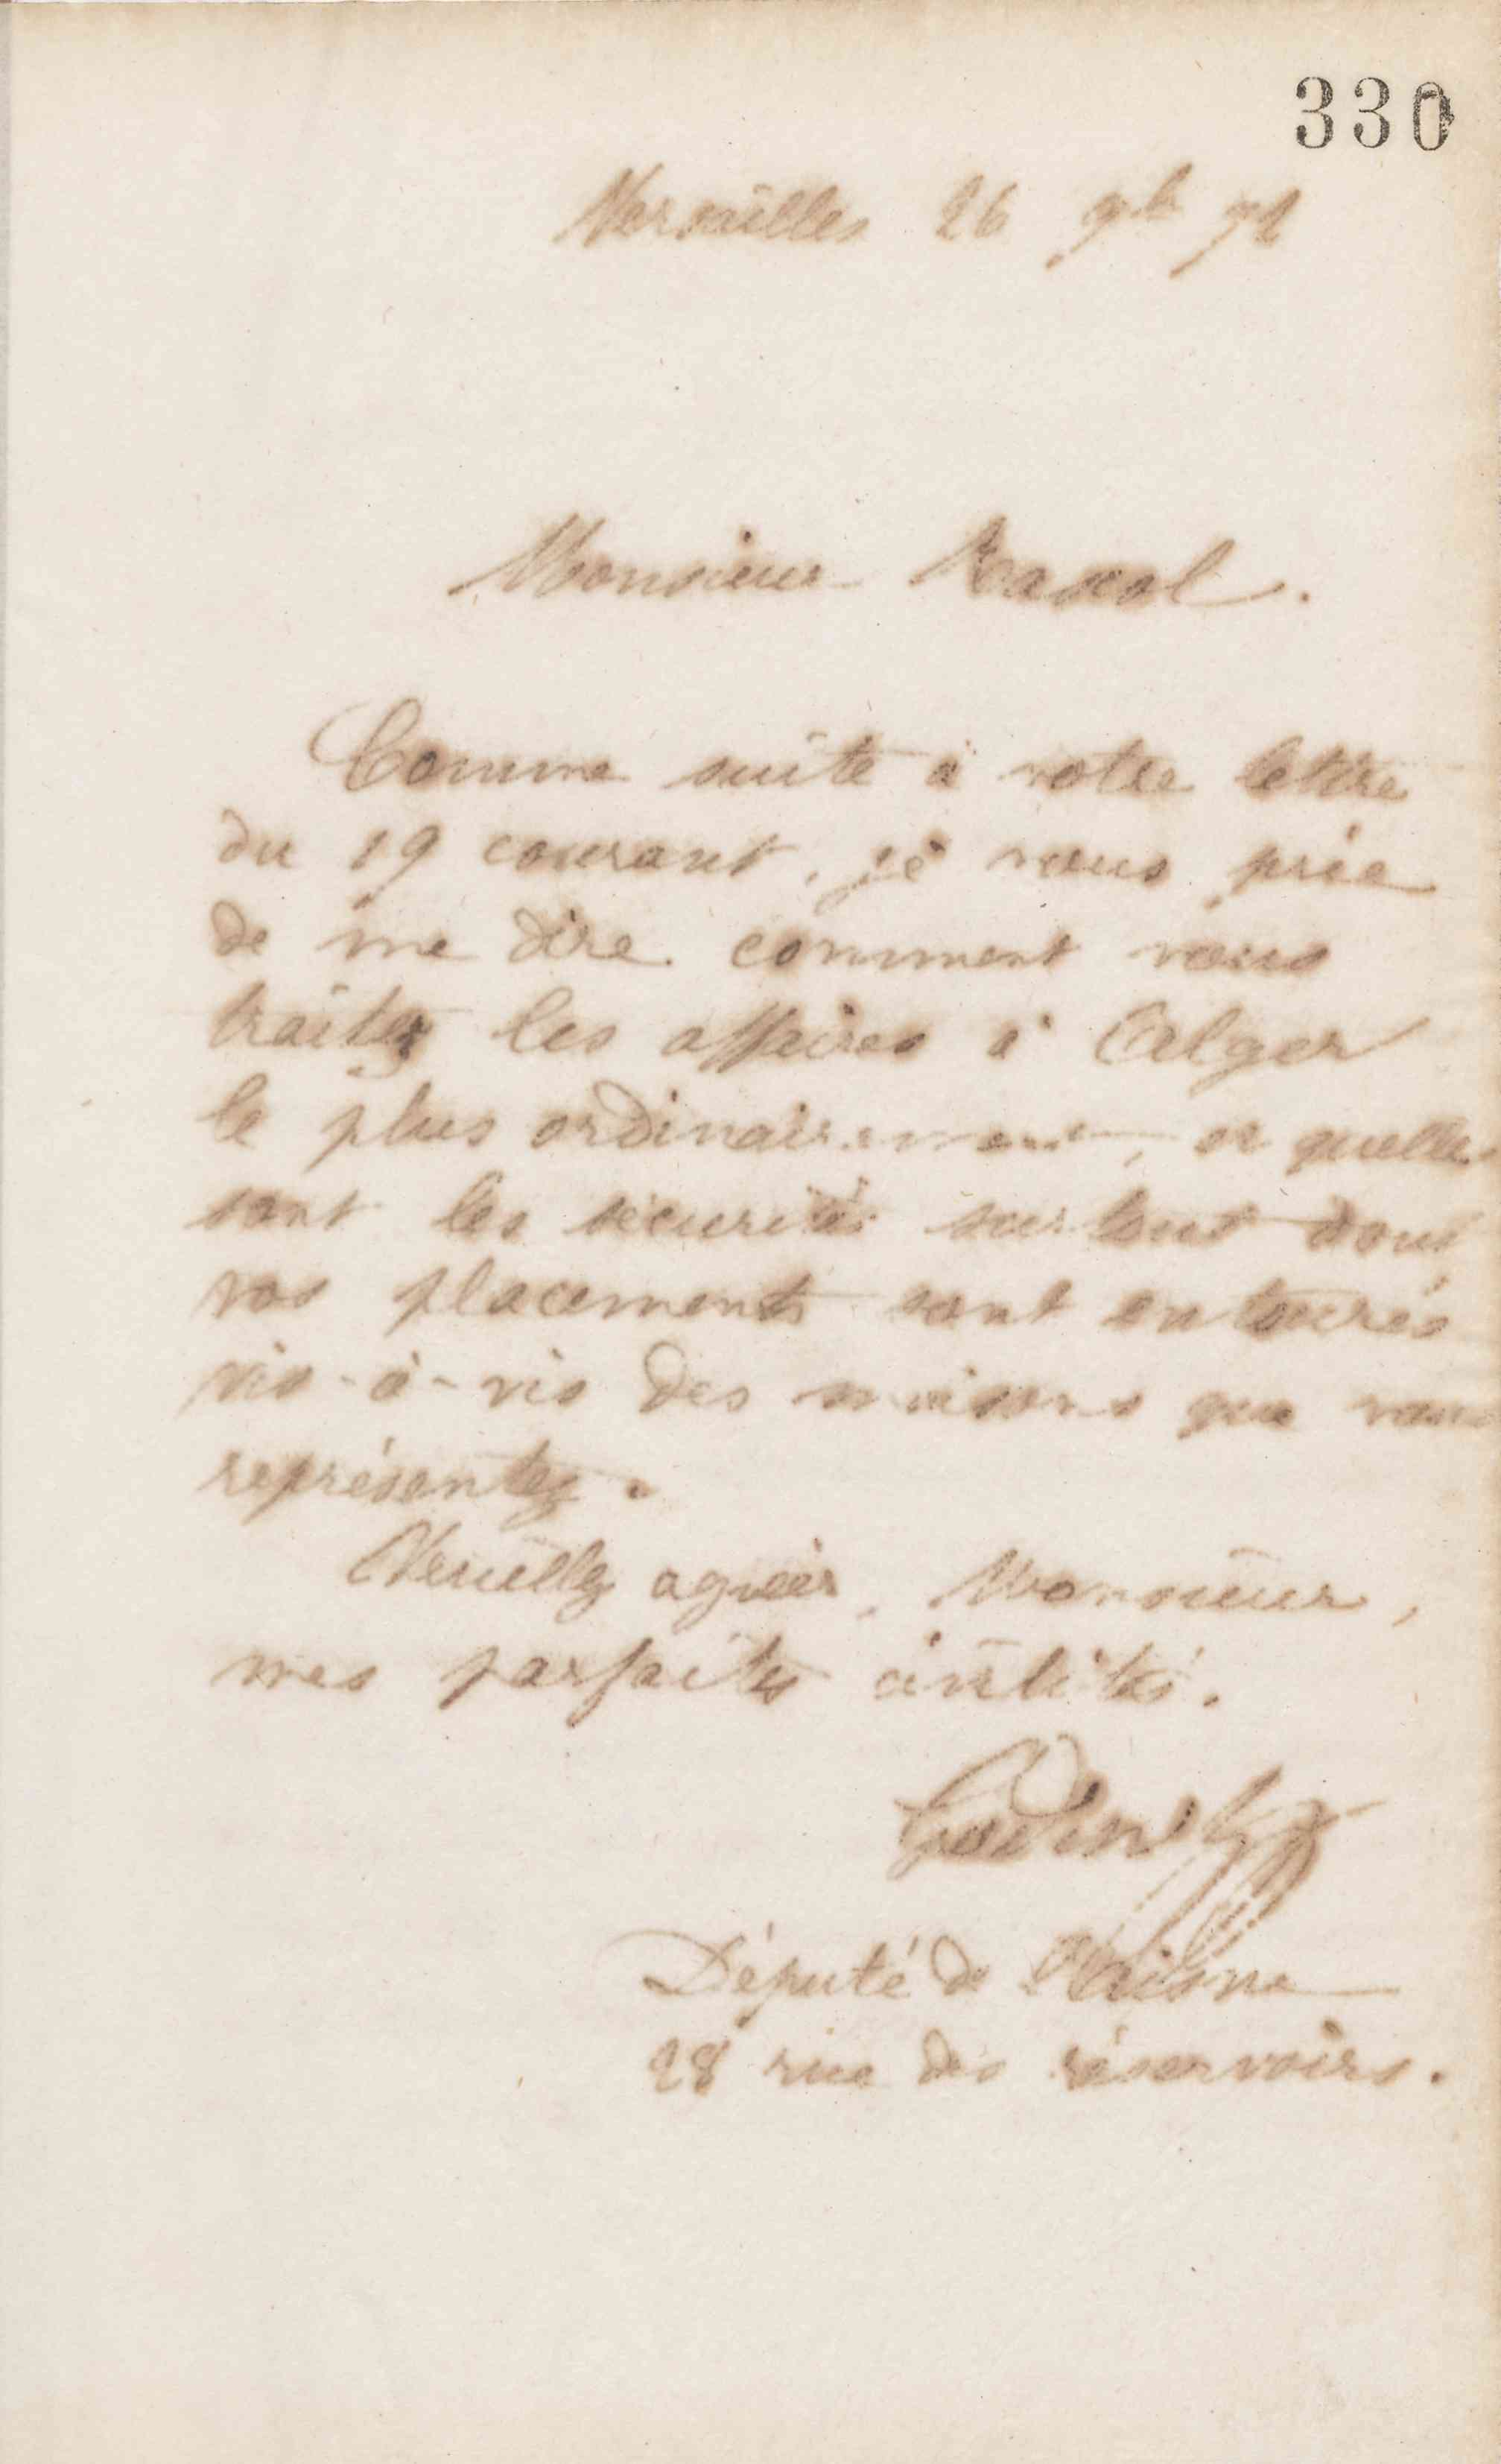 330
Versailles 26 9bre 72
Monsieur
Comme suite à votre lettre
du 19 courant, je vous prie
de me dire comment vous
traitez les affaires à Alger
le plus ordinairement, et quelles
sont les sécurités surtout dont
vos placements sont entourés
vis-à-vis des maisons que vous
représentez.
Veuillez agréer, Monsieur,
mes parfaites civilités.
Godin
Député de l'Aisne
28 rue des réservoirs.